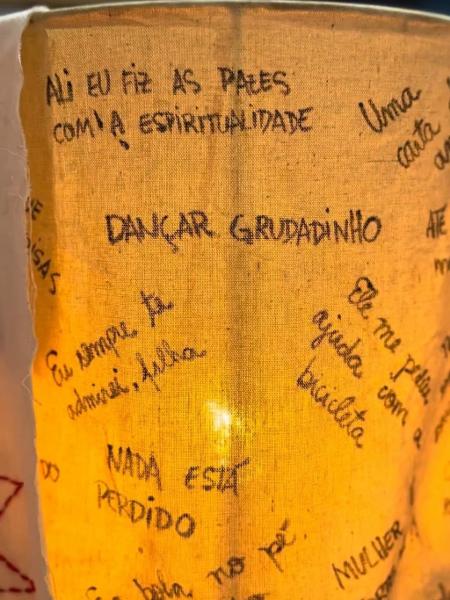 ALI EU FIZ AS PAZES
COM A ESPIRITUALIDADE
Uma
carta
DANÇAR GRUDADINHO
ATÉ
Eu sempre te
admirei, filha
Ele me pediu
ajuda com a
bicicleta
NADA ESTÁ
PERDIDO
DO
bola no pé
MULHER